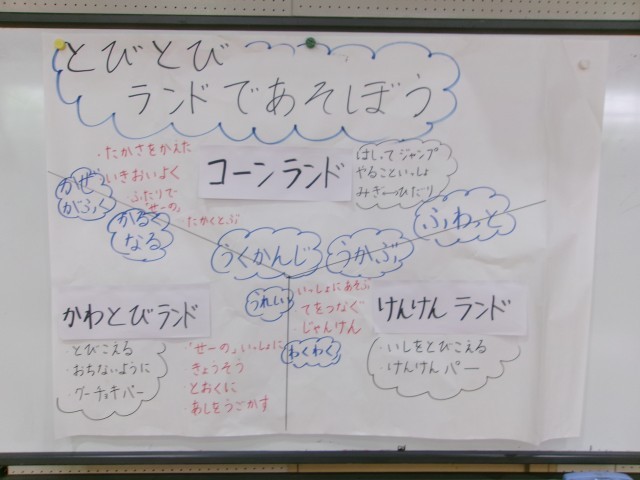 とびとび
ランドであそぼう
・たかさをかえた
いきおいよく
ふたりで
「せーの」
たかくとぶ
かぜ
がふく
かるく
なる
コーンランド
はしってジャンプ
やることいっしょ
みぎ⟷ひだり
うくかんじ
うかぶ
ふわっと
かわとびランド
・とびこえる
・おちないように
・グーチョキパー
・「せーの」いっしょに
・きょうそう
・とおくに
・あしをうごかす
うれしい
・いっしょにあそぶ
・てをつなぐ
・じゃんけん
わくわく
けんけんランド
・いしをとびこえる
・けんけんパー